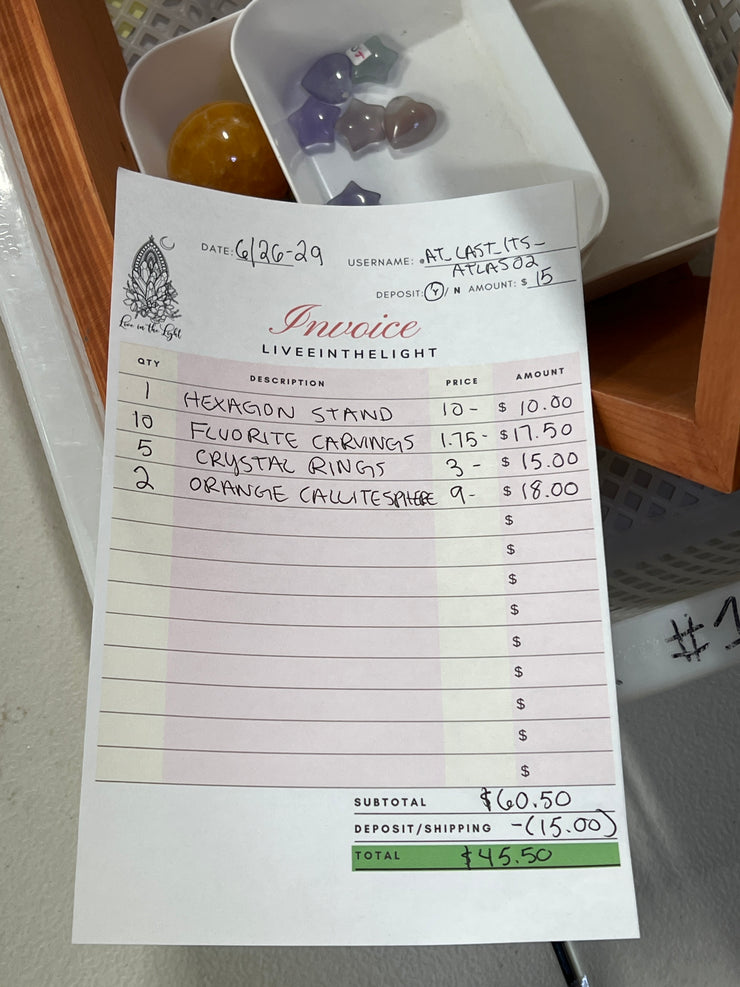 DATE: 6/26-29
USERNAME: AT_LAST_ITS_
ATLAS02
DEPOSIT: Y / N AMOUNT: $ 15
Live in the Light
Invoice
LIVEEINTHELIGHT
QTY DESCRIPTION PRICE AMOUNT
1 HEXAGON STAND 10- $ 10.00
10 FLUORITE CARVINGS 1.75- $17.50
5 CRYSTAL RINGS 3- $ 15.00
2 ORANGE CALCITE SPHERE 9- $ 18.00
$
$
$
$
$
$
$
$
$
SUBTOTAL $60.50
DEPOSIT/SHIPPING -(15.00)
TOTAL $45.50